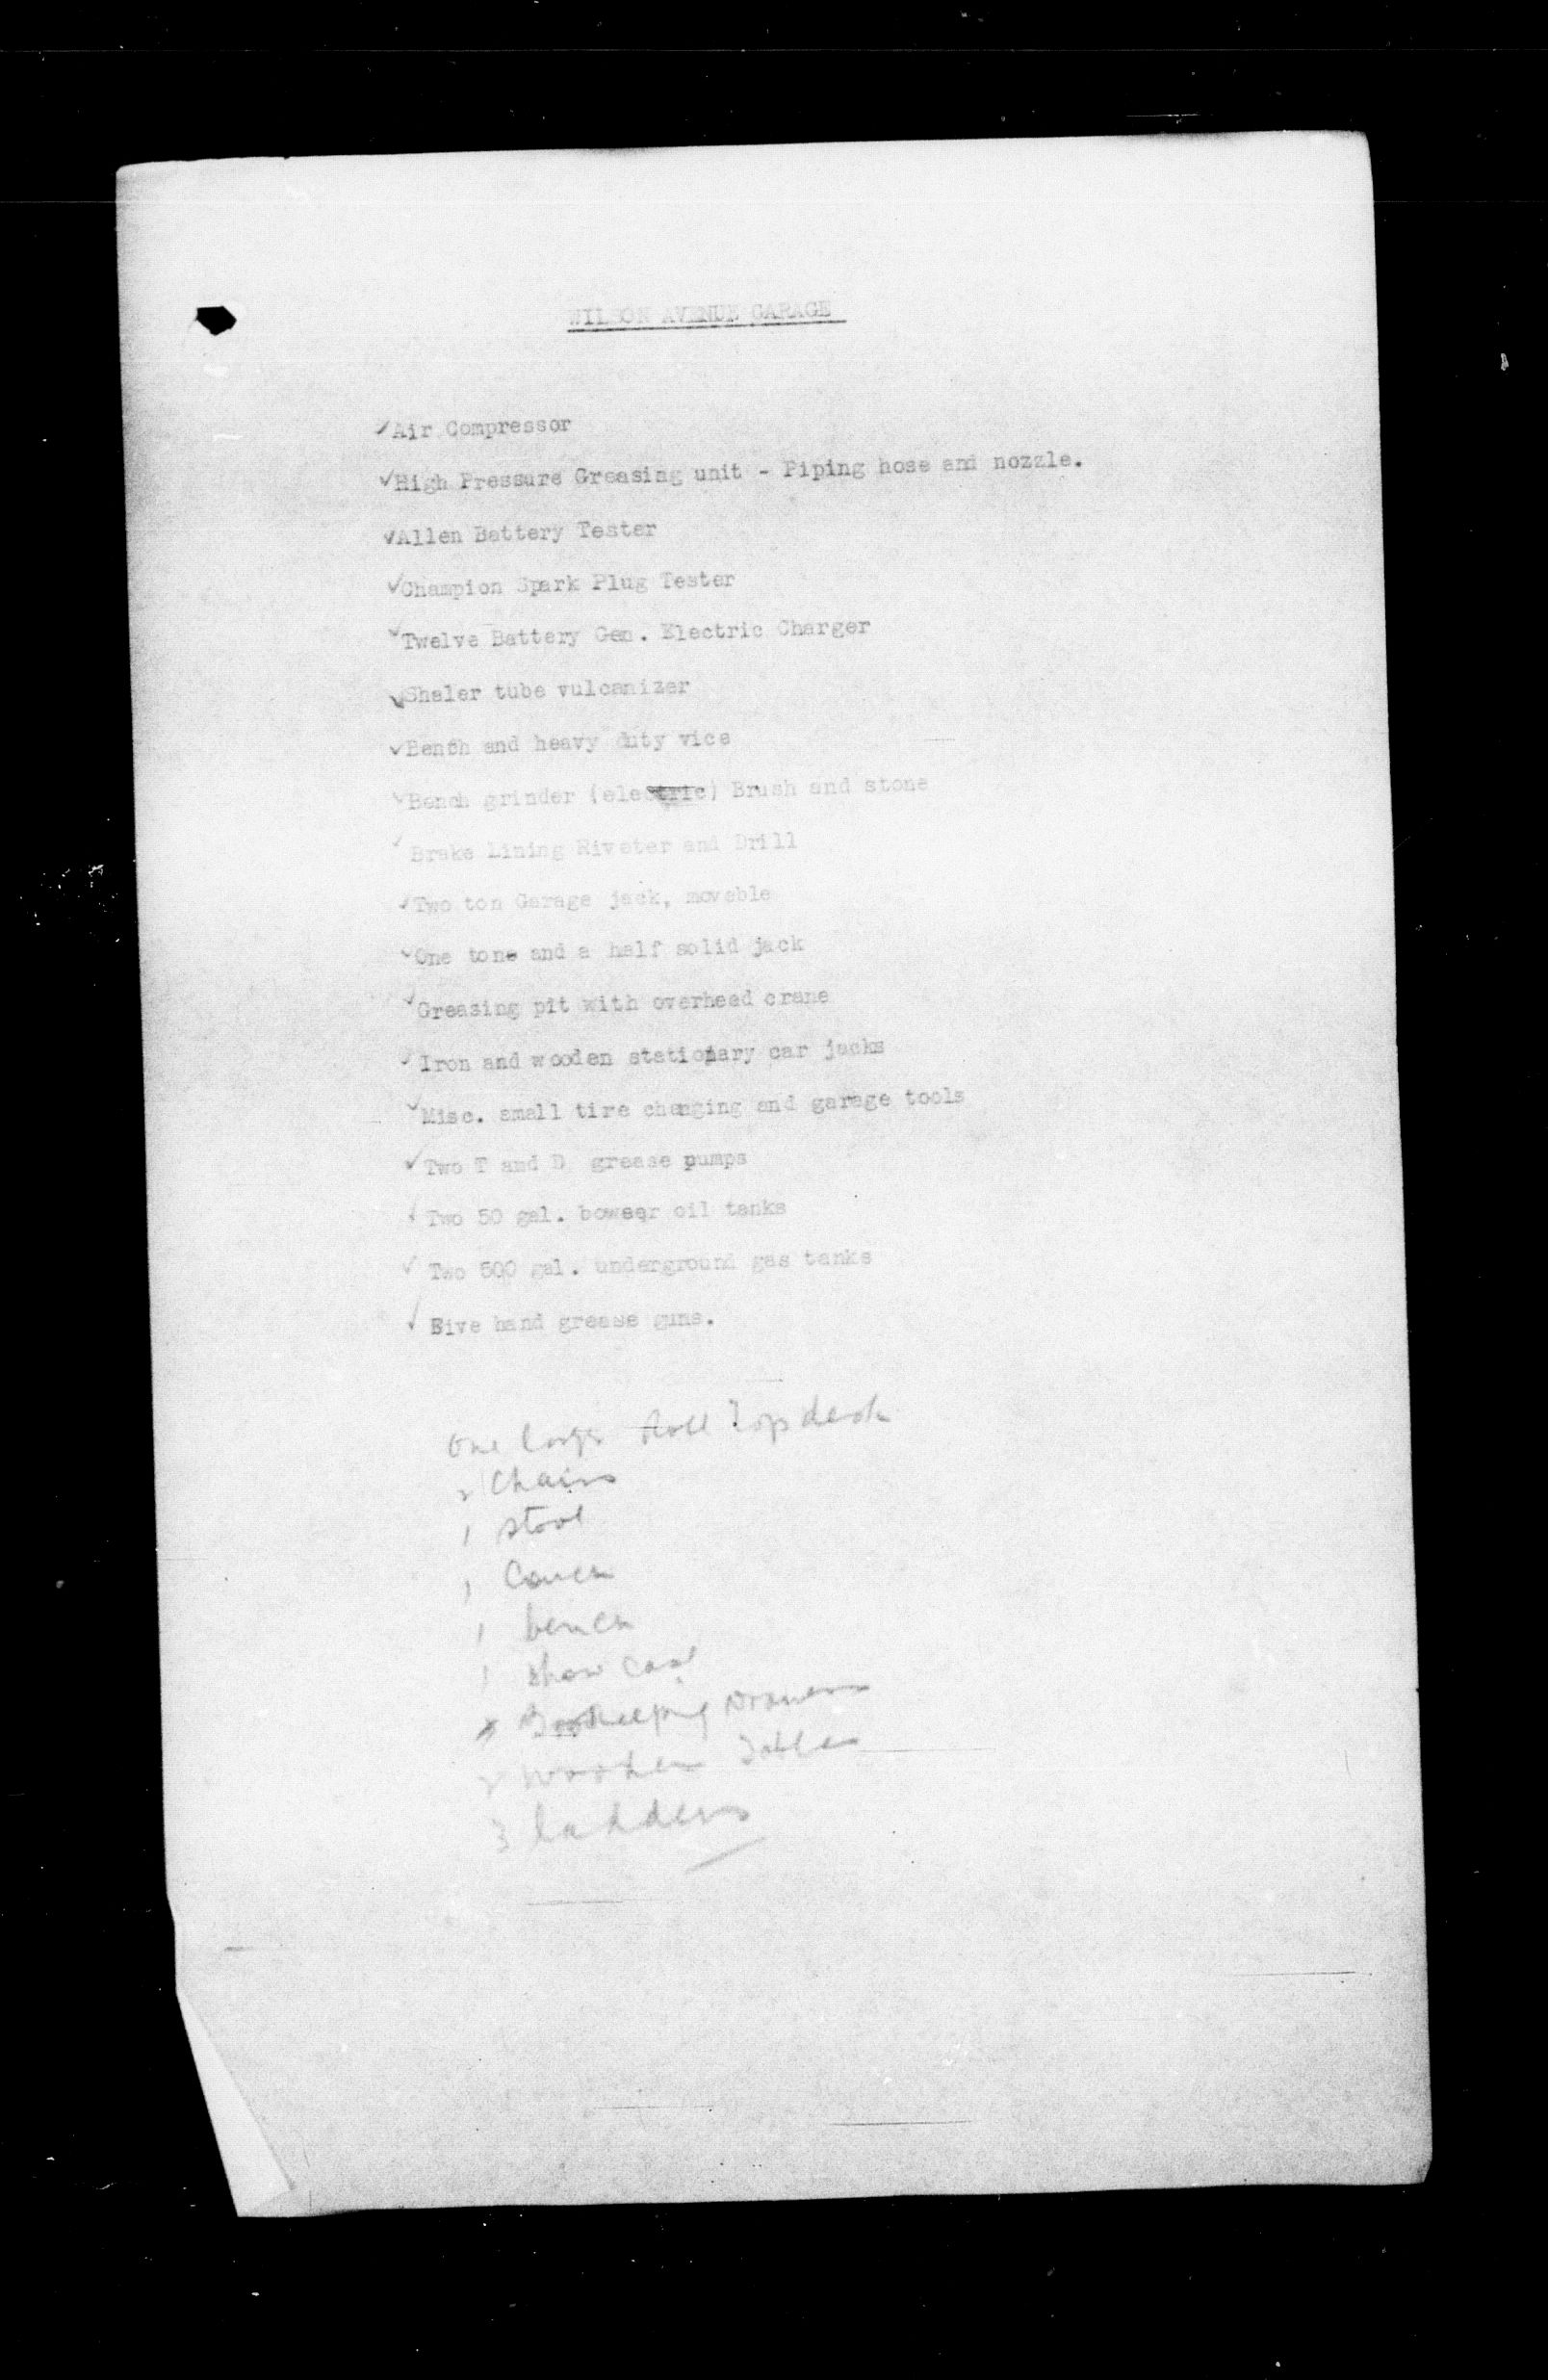 WILSON AVENUE GARAGE
✓Air Compressor
✓High Pressure Greasing unit - Piping hose and nozzle.
✓Allen Battery Tester
✓Champion Spark Plug Tester
✓Twelve Battery Gen. Electric Charger
✓Shaler tube vulcanizer
✓Bench and heavy duty vice
✓Bench grinder (electric) Brush and stone
✓Brake Lining Riveter and Drill
✓Two ton Garage jack, moveble
✓One tone and a half solid jack
✓Greasing pit with overheed crane
✓Iron and wooden stationary car jacks
✓Misc. small tire changing and garage tools
✓Two T and D grease pumps
✓Two 50 gal. bowser oil tanks
✓Two 500 gal. underground gas tanks
✓Five hand grease guns.
One large Roll Top desk
2 Chairs
1 stool
1 Couch
1 bench
1 show case
Bookeeping Drawers
2 Wooden Tables
3 ladders